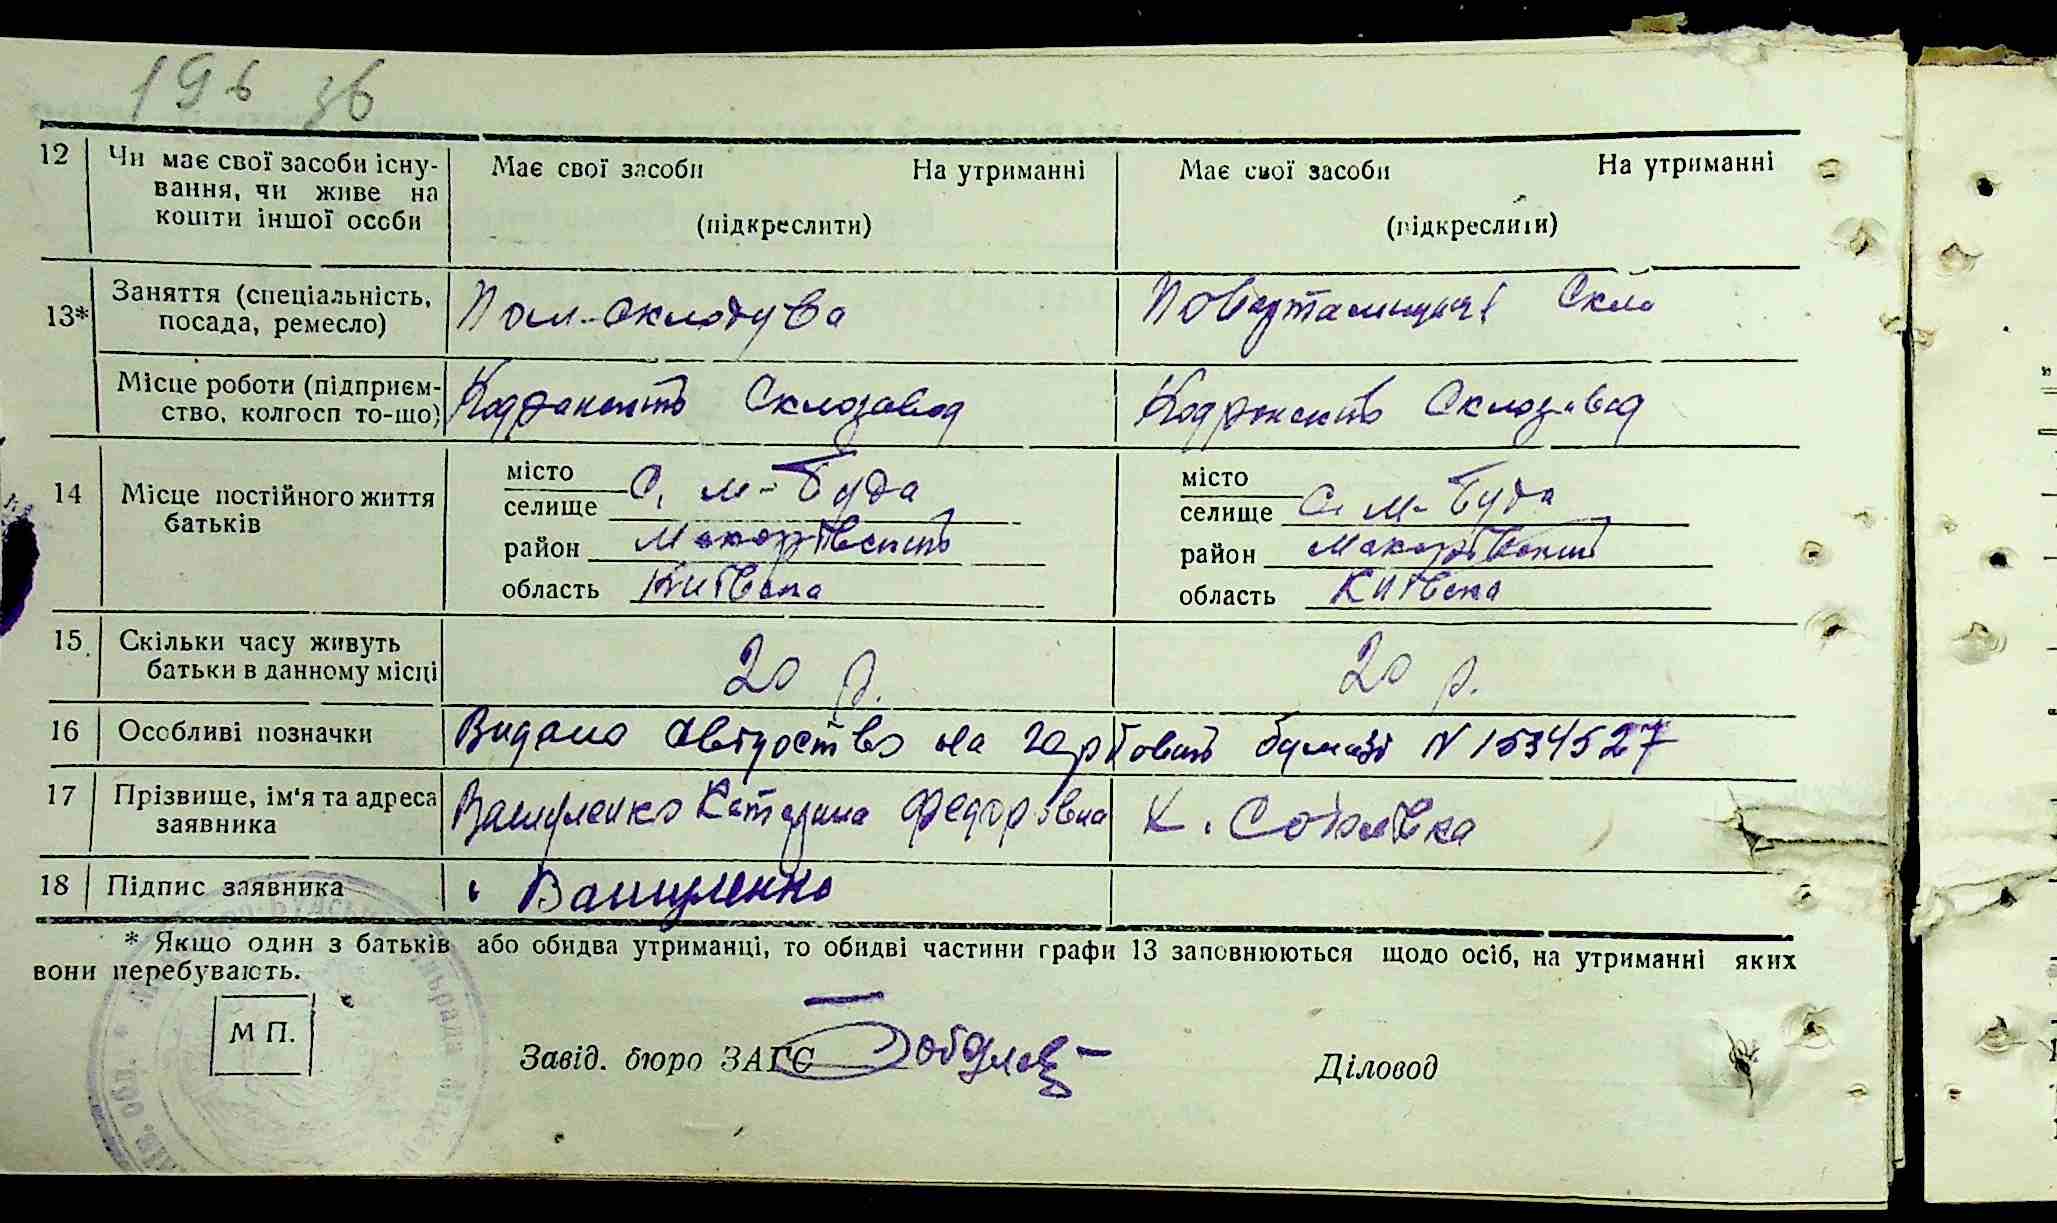 196 зв
12 Чи має свої засоби існу-
вання, чи живе на
кошти іншої особи
Має свої засоби На утриманні
(підкреслити)
Має свої засоби На утриманні
(підкреслити)
13* Заняття (спеціальність,
посада, ремесло)
Пом. склодува
Скло
Місце роботи (підприєм-
ство, колгосп то-що)
Кодранский Склозавод
Кодранский Склозавод
14 Місце постійного життя
батьків
місто
селище С. М-Буда
район Макарівский
область Київска
місто
селище С. М-Буда
район Макарівский
область Київска
15. Скільки часу живуть
батьки в данному місці
20 р.
20 р.
16 Особливі позначки
Видано свідоство на гербовий бумазі N 1534527
17 Прізвище, ім'я та адреса
заявника
Вашуленко Катерина Федорівна
х. Соболевка
18 Підпис заявника
Вашуленко
* Якщо один з батьків або обидва утриманці, то обидві частини графи 13 заповнюються щодо осіб, на утриманні яких
вони перебувають.
М П.
Завід. бюро ЗАГС
Діловод